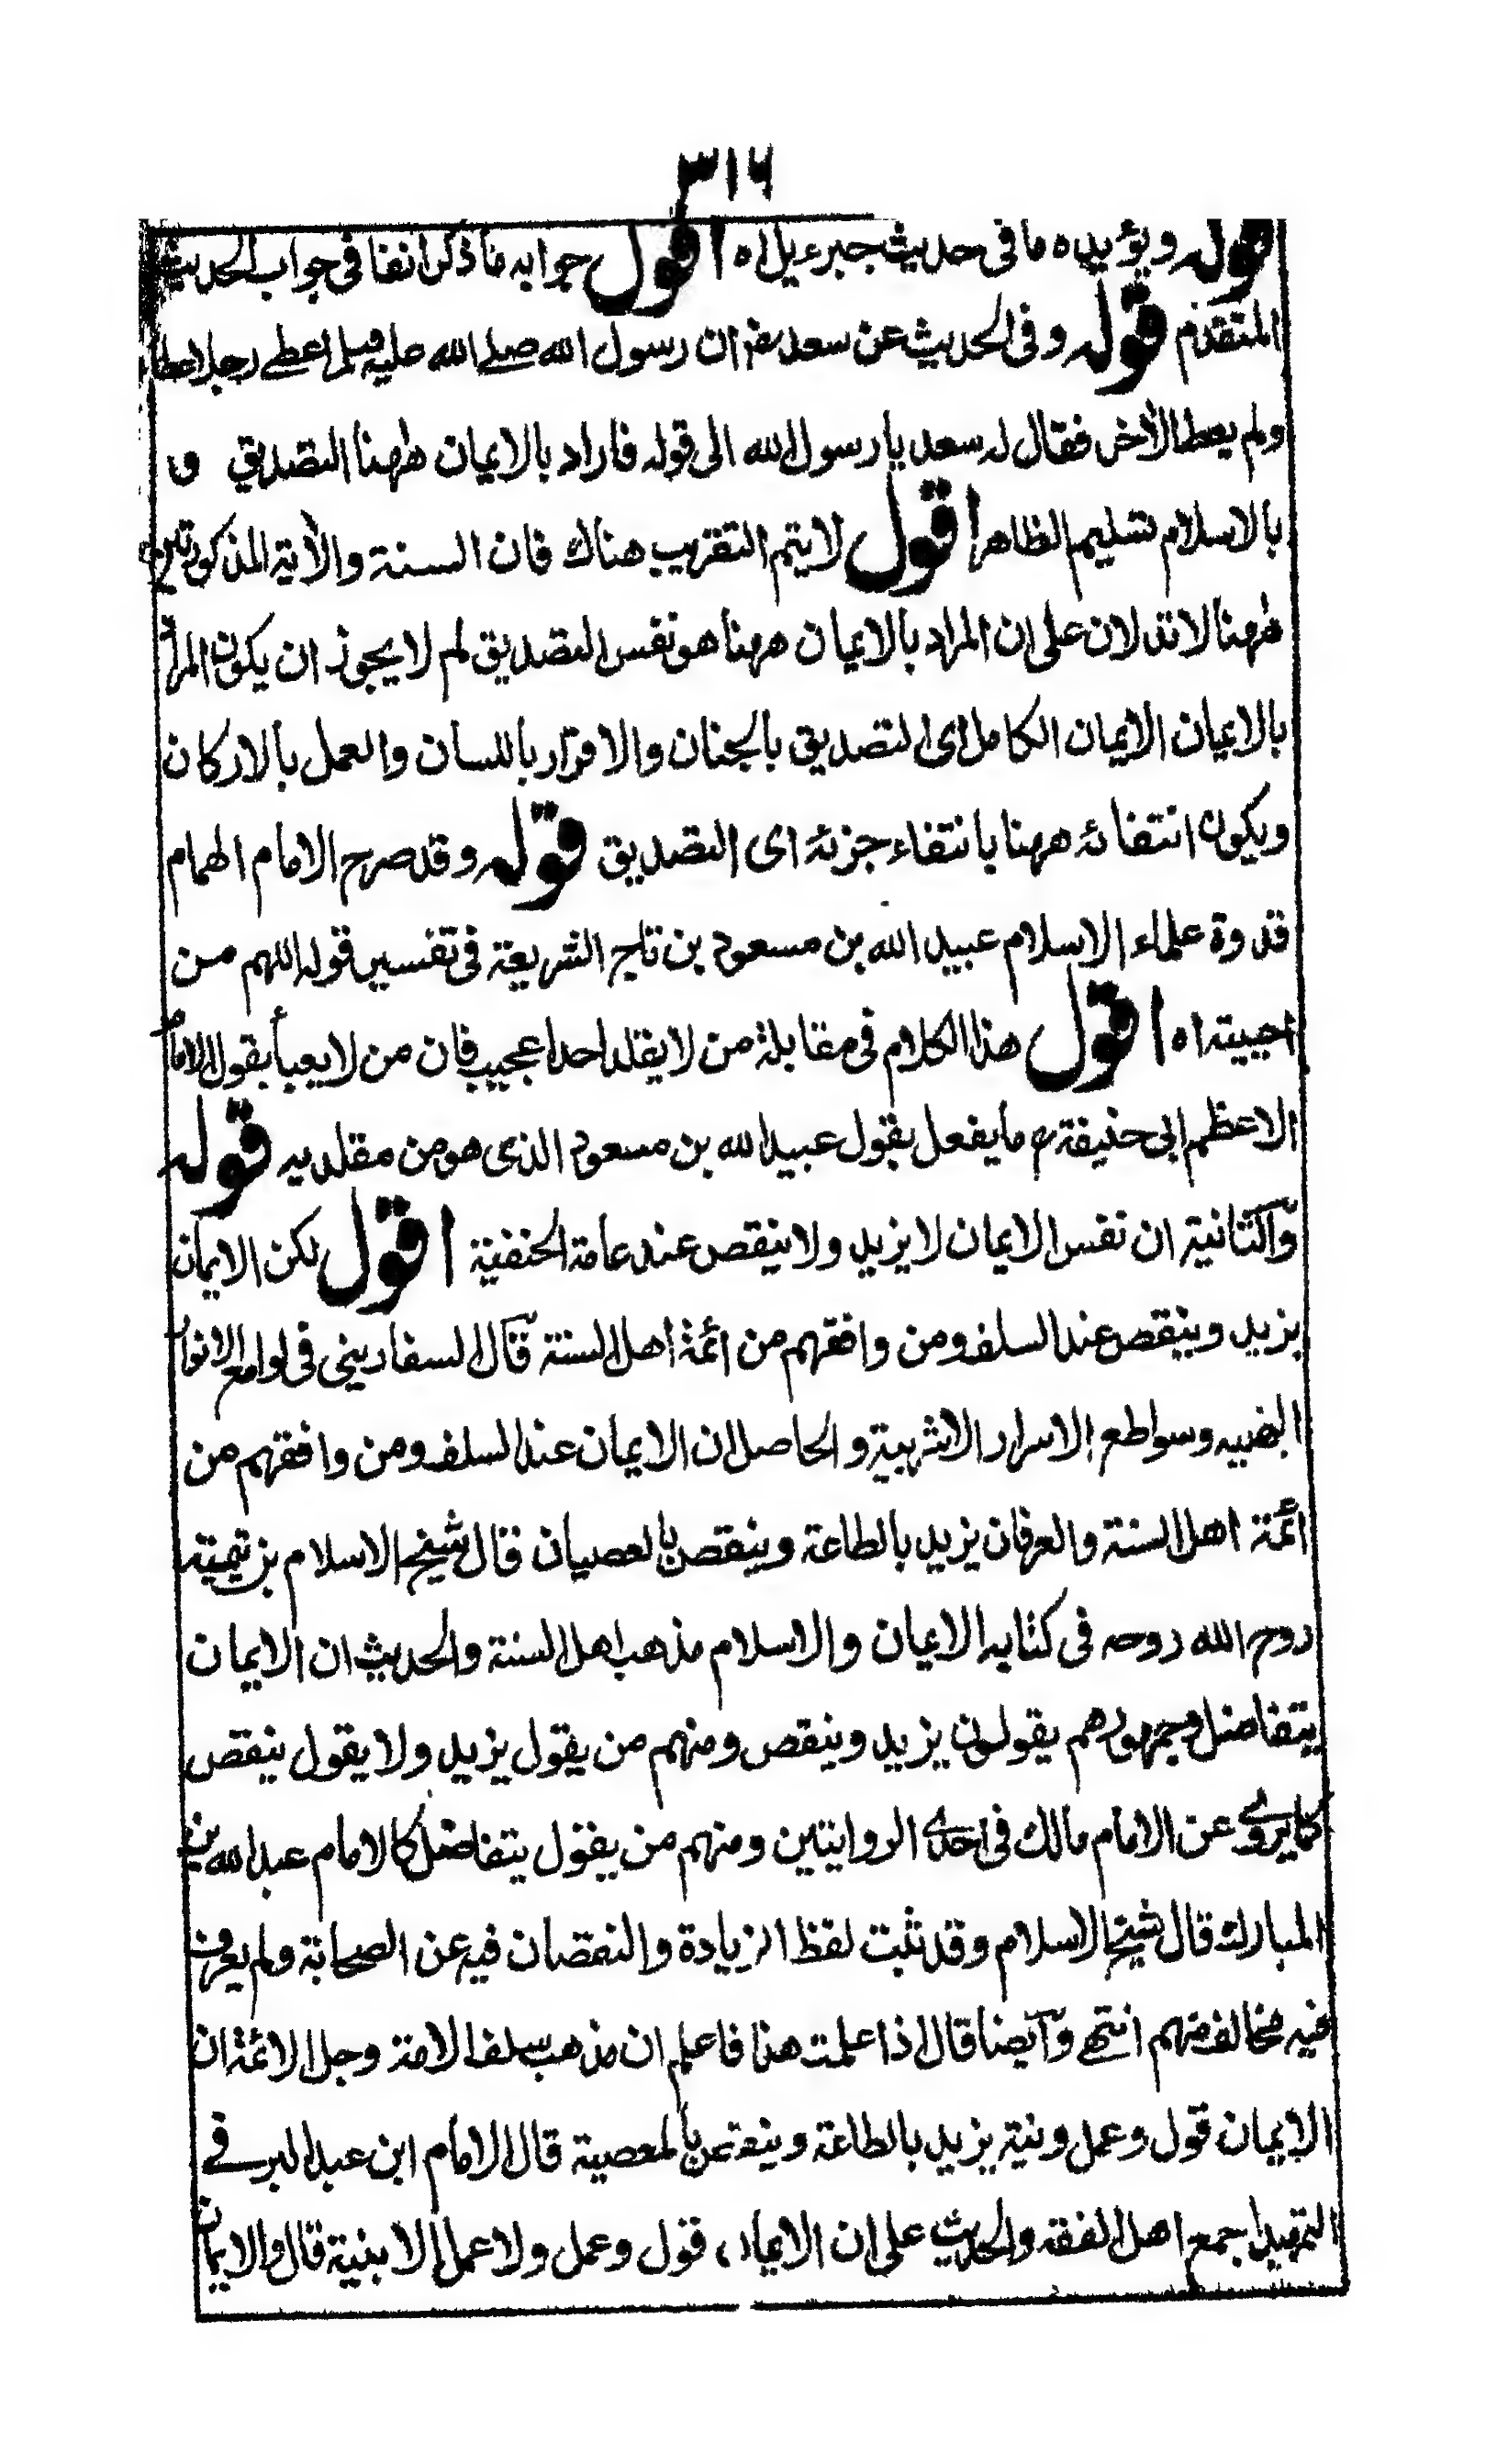 ٣١٦
قوله ويؤيده ما فى حديث جبرءيل اه اقول جوابه ما ذكر انفا فى جواب الحديث
المتقدم قوله وفى الحديث عن سعد ان رسول الله صلى الله عليه وسلم اعطى رجلا
ولم يعط الأخر فقال له سعد يا رسول الله الى قوله فاراد بالايمان ههنا التصديق و
بالاسلام تسليم الظاهر اقول لا يتم التقريب هناك فان السنة والأية المذكورتين
ههنا لا تدلان على ان المراد بالايمان ههنا هو نفس التصديق لم لا يجوز ان يكون المراد
بالايمان الايمان الكامل اى التصديق بالجنان والاقرار باللسان والعمل بالاركان
ويكون انتفائه ههنا بانتفاء جزئه اى التصديق قوله وقد صرح الامام الهمام
قدوة علماء الاسلام عبيد الله بن مسعود بن تاج الشريعة فى تفسير قوله اللهم من
احييته اه اقول هذا الكلام فى مقابلة من لا يقلد احدا عجيب فان من لا يعبأ بقول الامام
الاعظم ابى حنيفة رح ما يفعل بقول عبيد الله بن مسعود الذى هو من مقلديه قوله
وآلثانية ان نفس الايمان لا يزيد ولا ينقص عند عامة الحنفية اقول لكن الايمان
يزيد وينقص عند السلف ومن وافقهم من ائمة اهل السنة قآل السفارينى فى لوامع الانوار
البهيه وسواطع الاسرار الاثرية والحاصل ان الايمان عند السلف ومن وافقهم من
ائمة اهل السنة والعرفان يزيد بالطاعة وينقص بالعصيان قال شيخ الاسلام بن تيمية
روح الله روحه فى كتابه الايمان والاسلام مذهب اهل السنة والحديث ان الايمان
يتفاضل وجمهورهم يقولون يزيد وينقص ومنهم من يقول يزيد ولا يقول ينقص
كما يروى عن الامام مالك فى احدى الروايتين ومنهم من يقول يتفاضل كالامام عبد الله بن
المبارك قال شيخ الاسلام وقد ثبت لفظ الزيادة والنقصان فيه عن الصحابة ولم يعرف
فيه مخالف منهم انتهى وآيضا قال اذا علمت هذا فاعلم ان مذهب سلف الامة وجل الائمة ان
الايمان قول وعمل ونية يزيد بالطاعة وينقص بالمعصية قال الامام ابن عبد البر فى
التمهيد اجمع اهل الفقه والحديث على ان الايمان قول وعمل ولا عمل الا بنية قال والايمان